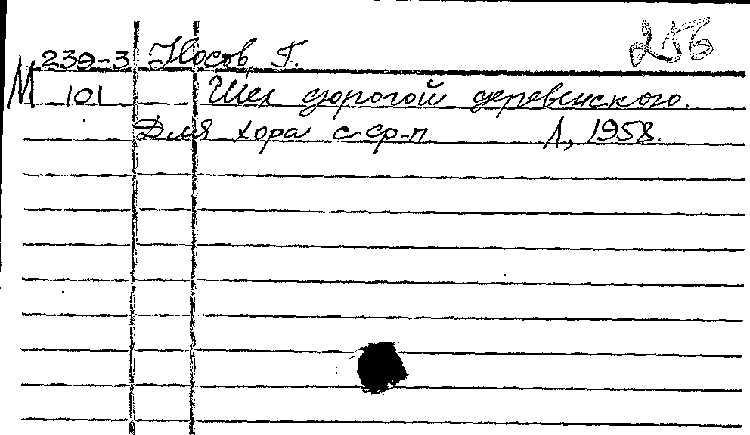 256
239-3 Носов Г.
М 101 Шел дорогой деревенского.
Для хора с ср-п Л, 1958.